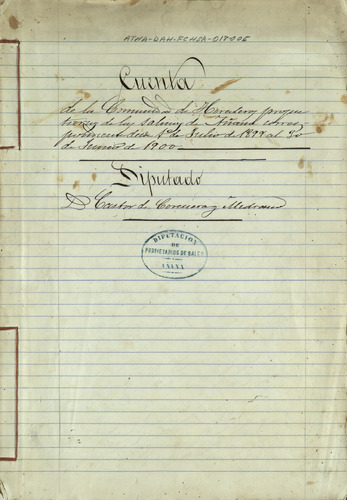 ATHA-DAH-FCHSA-017006
Cuenta
de la Comunidad de Herederos propie
tarios de las salinas de Añana corres-
pondiente desde 1º de Julio de 1899 al 30
de Junio de 1900.
Diputado
D. Castor de Corcuera y Medrano
DIPUTACION
DE
PROPIETARIOS DE SALES
AÑANA